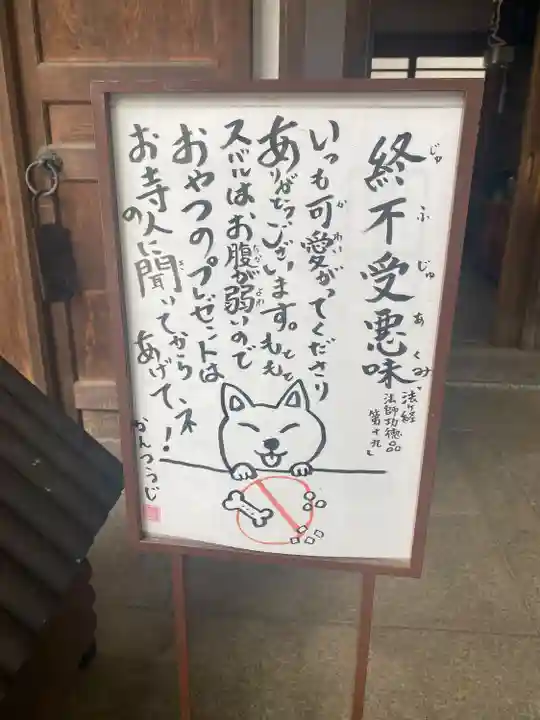 終不受悪味
じゅふじゅあくみ
法ヶ経
法師功徳品
第十九
いつも可愛がってくださり
ありがとうございます。もも
スバルはお腹が弱いので
おやつのプレゼントは
お寺の人に聞いてから、ネ
あげて、!
かんつうじ